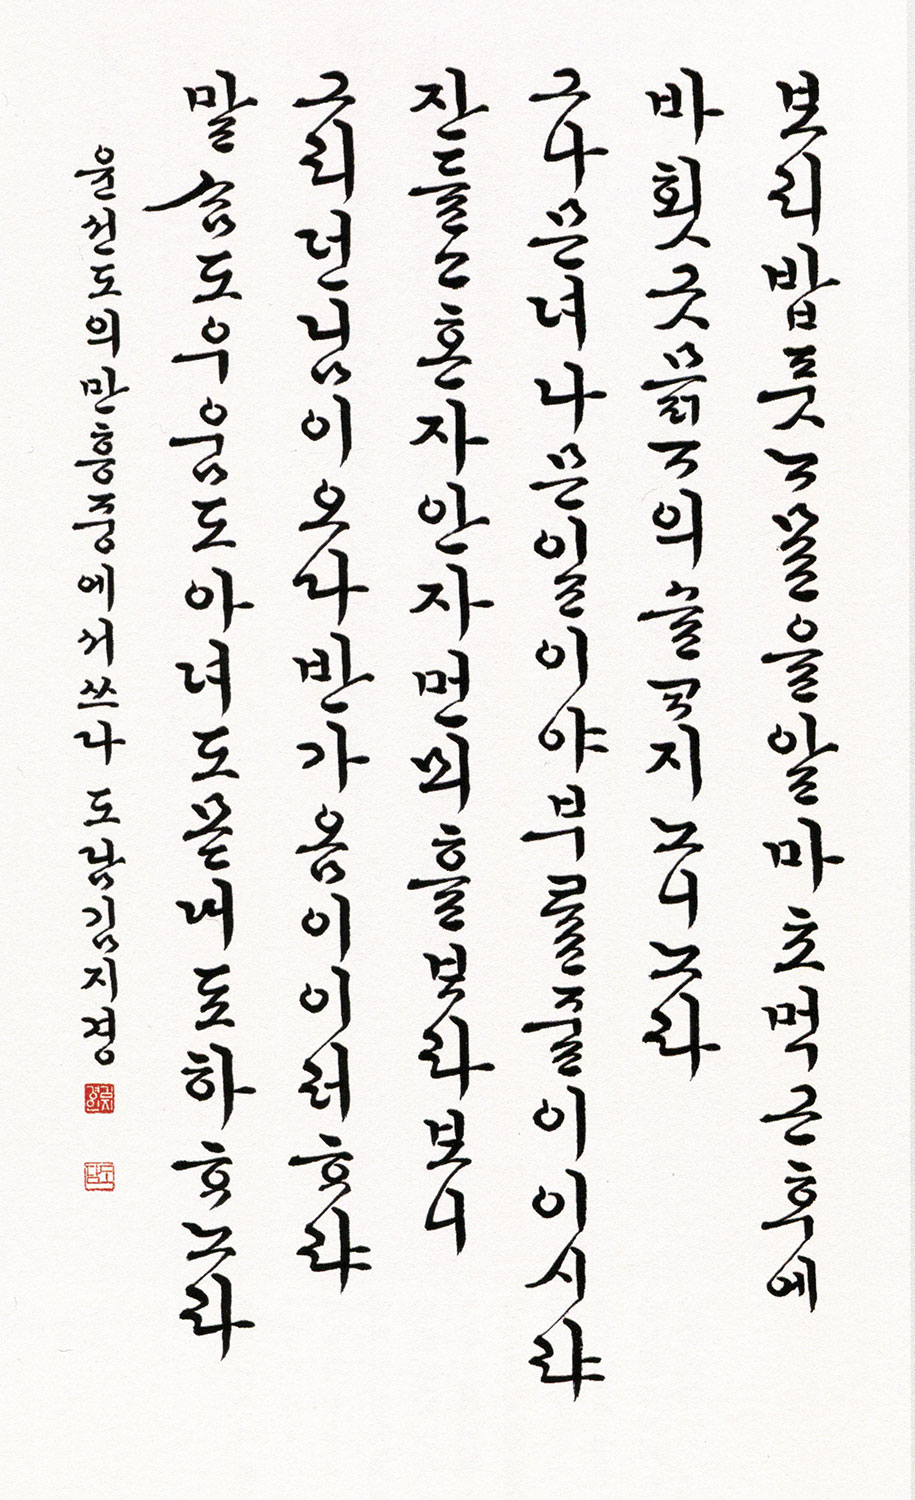 보리밥픗ᄂᆞ믈을알마초먹근후에
바횟긋믉ᄀᆞ의슬ᄏᆞ지노니노라
그나믄녀나믄일이야부를줄이이시랴
잔들고혼자안자먼뫼흘ᄇᆞ라보니
그리던님이오다반가옴이이러ᄒᆞ랴
말ᄉᆞᆷ도우움도아녀도몯내됴하ᄒᆞ노라
윤선도의만흥중에서쓰다 도남김지경